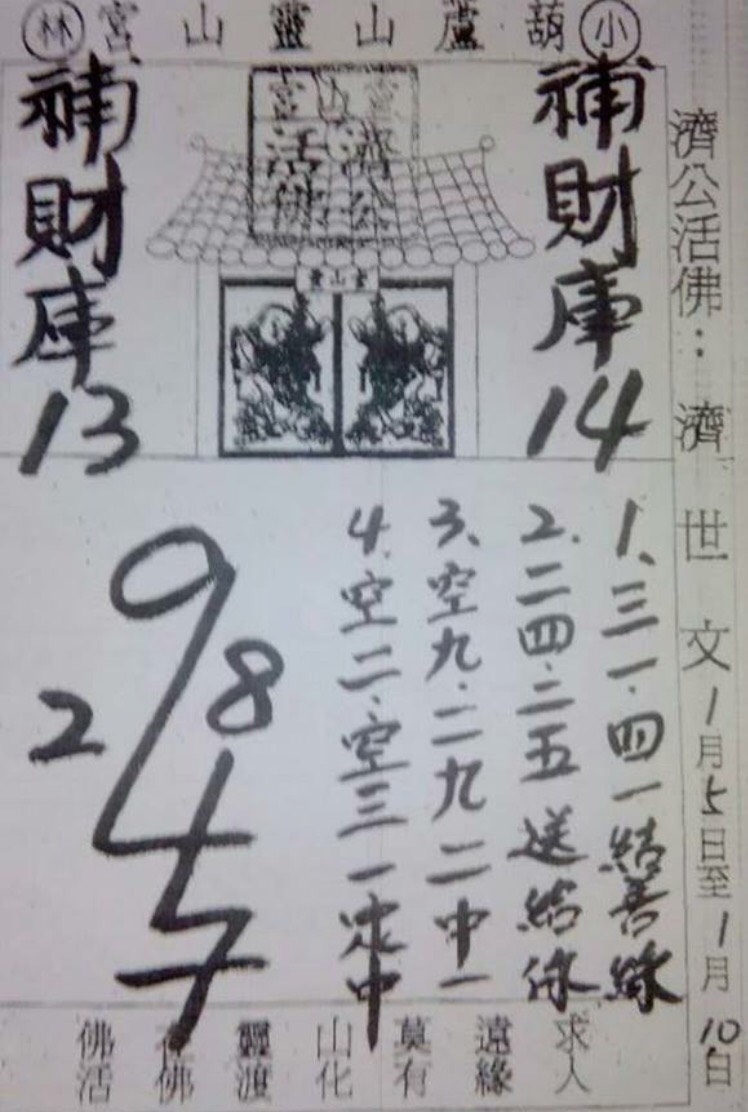 小葫蘆山靈山宮林
濟公活佛：濟世文1月5日至1月10日
補財庫14
靈山宮
濟公
活佛
補財庫13
1、三一．四一結善緣
2.二四．二五送結緣
3、空九．二九二中一
4.空二．空三一定中
9
8
2
4
7
佛在靈山莫遠求
活佛渡化有緣人